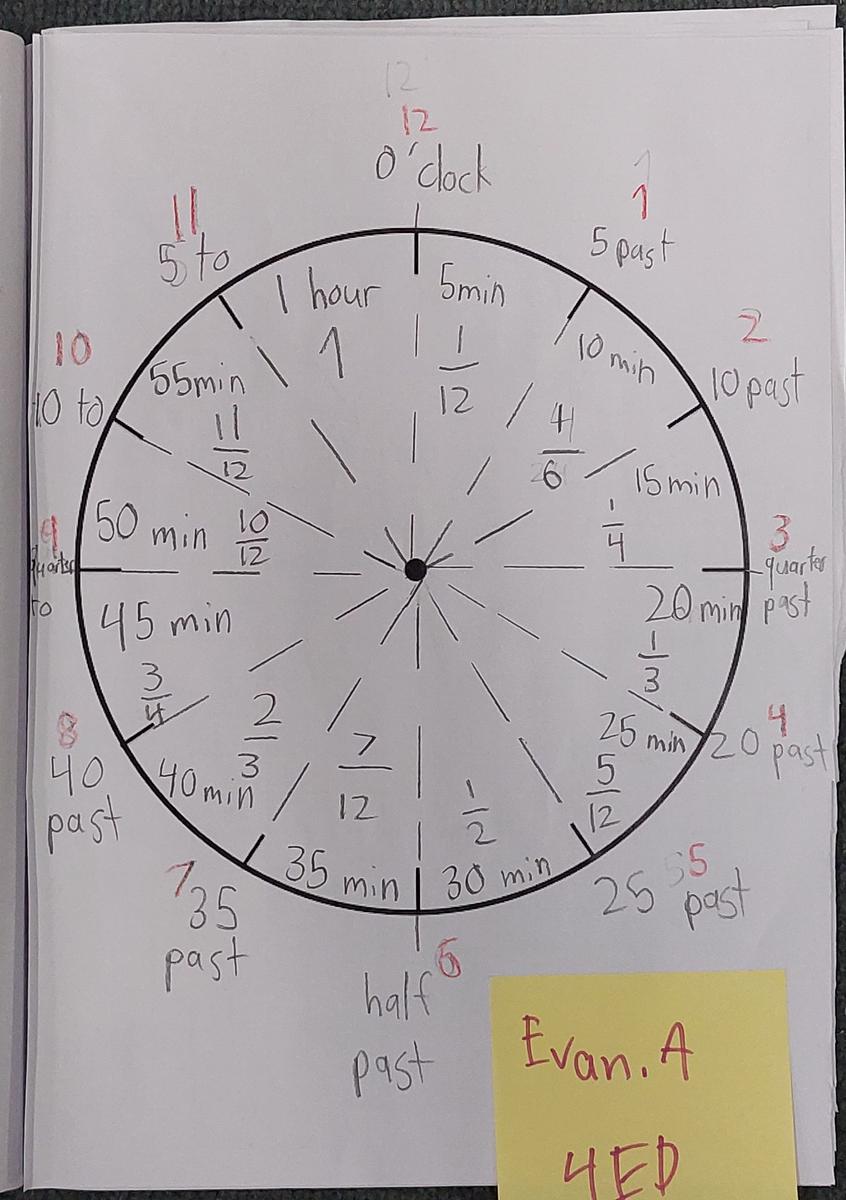 12
12
O'clock
1
1
5 past
2
10 past
3
quarter
past
4
20 past
5 5
25 past
6
half
past
7
35
past
8
40
past
9
quarter
to
10
10 to
11
5 to
5min
1
12
10 min
6
15min
1
4
20 min
1
3
25 min
5
12
1
2
30 min
7
12
35 min
2
3
40min
45 min
3
4
50 min
10
12
55min
11
12
1 hour
1
Evan. A
4ED